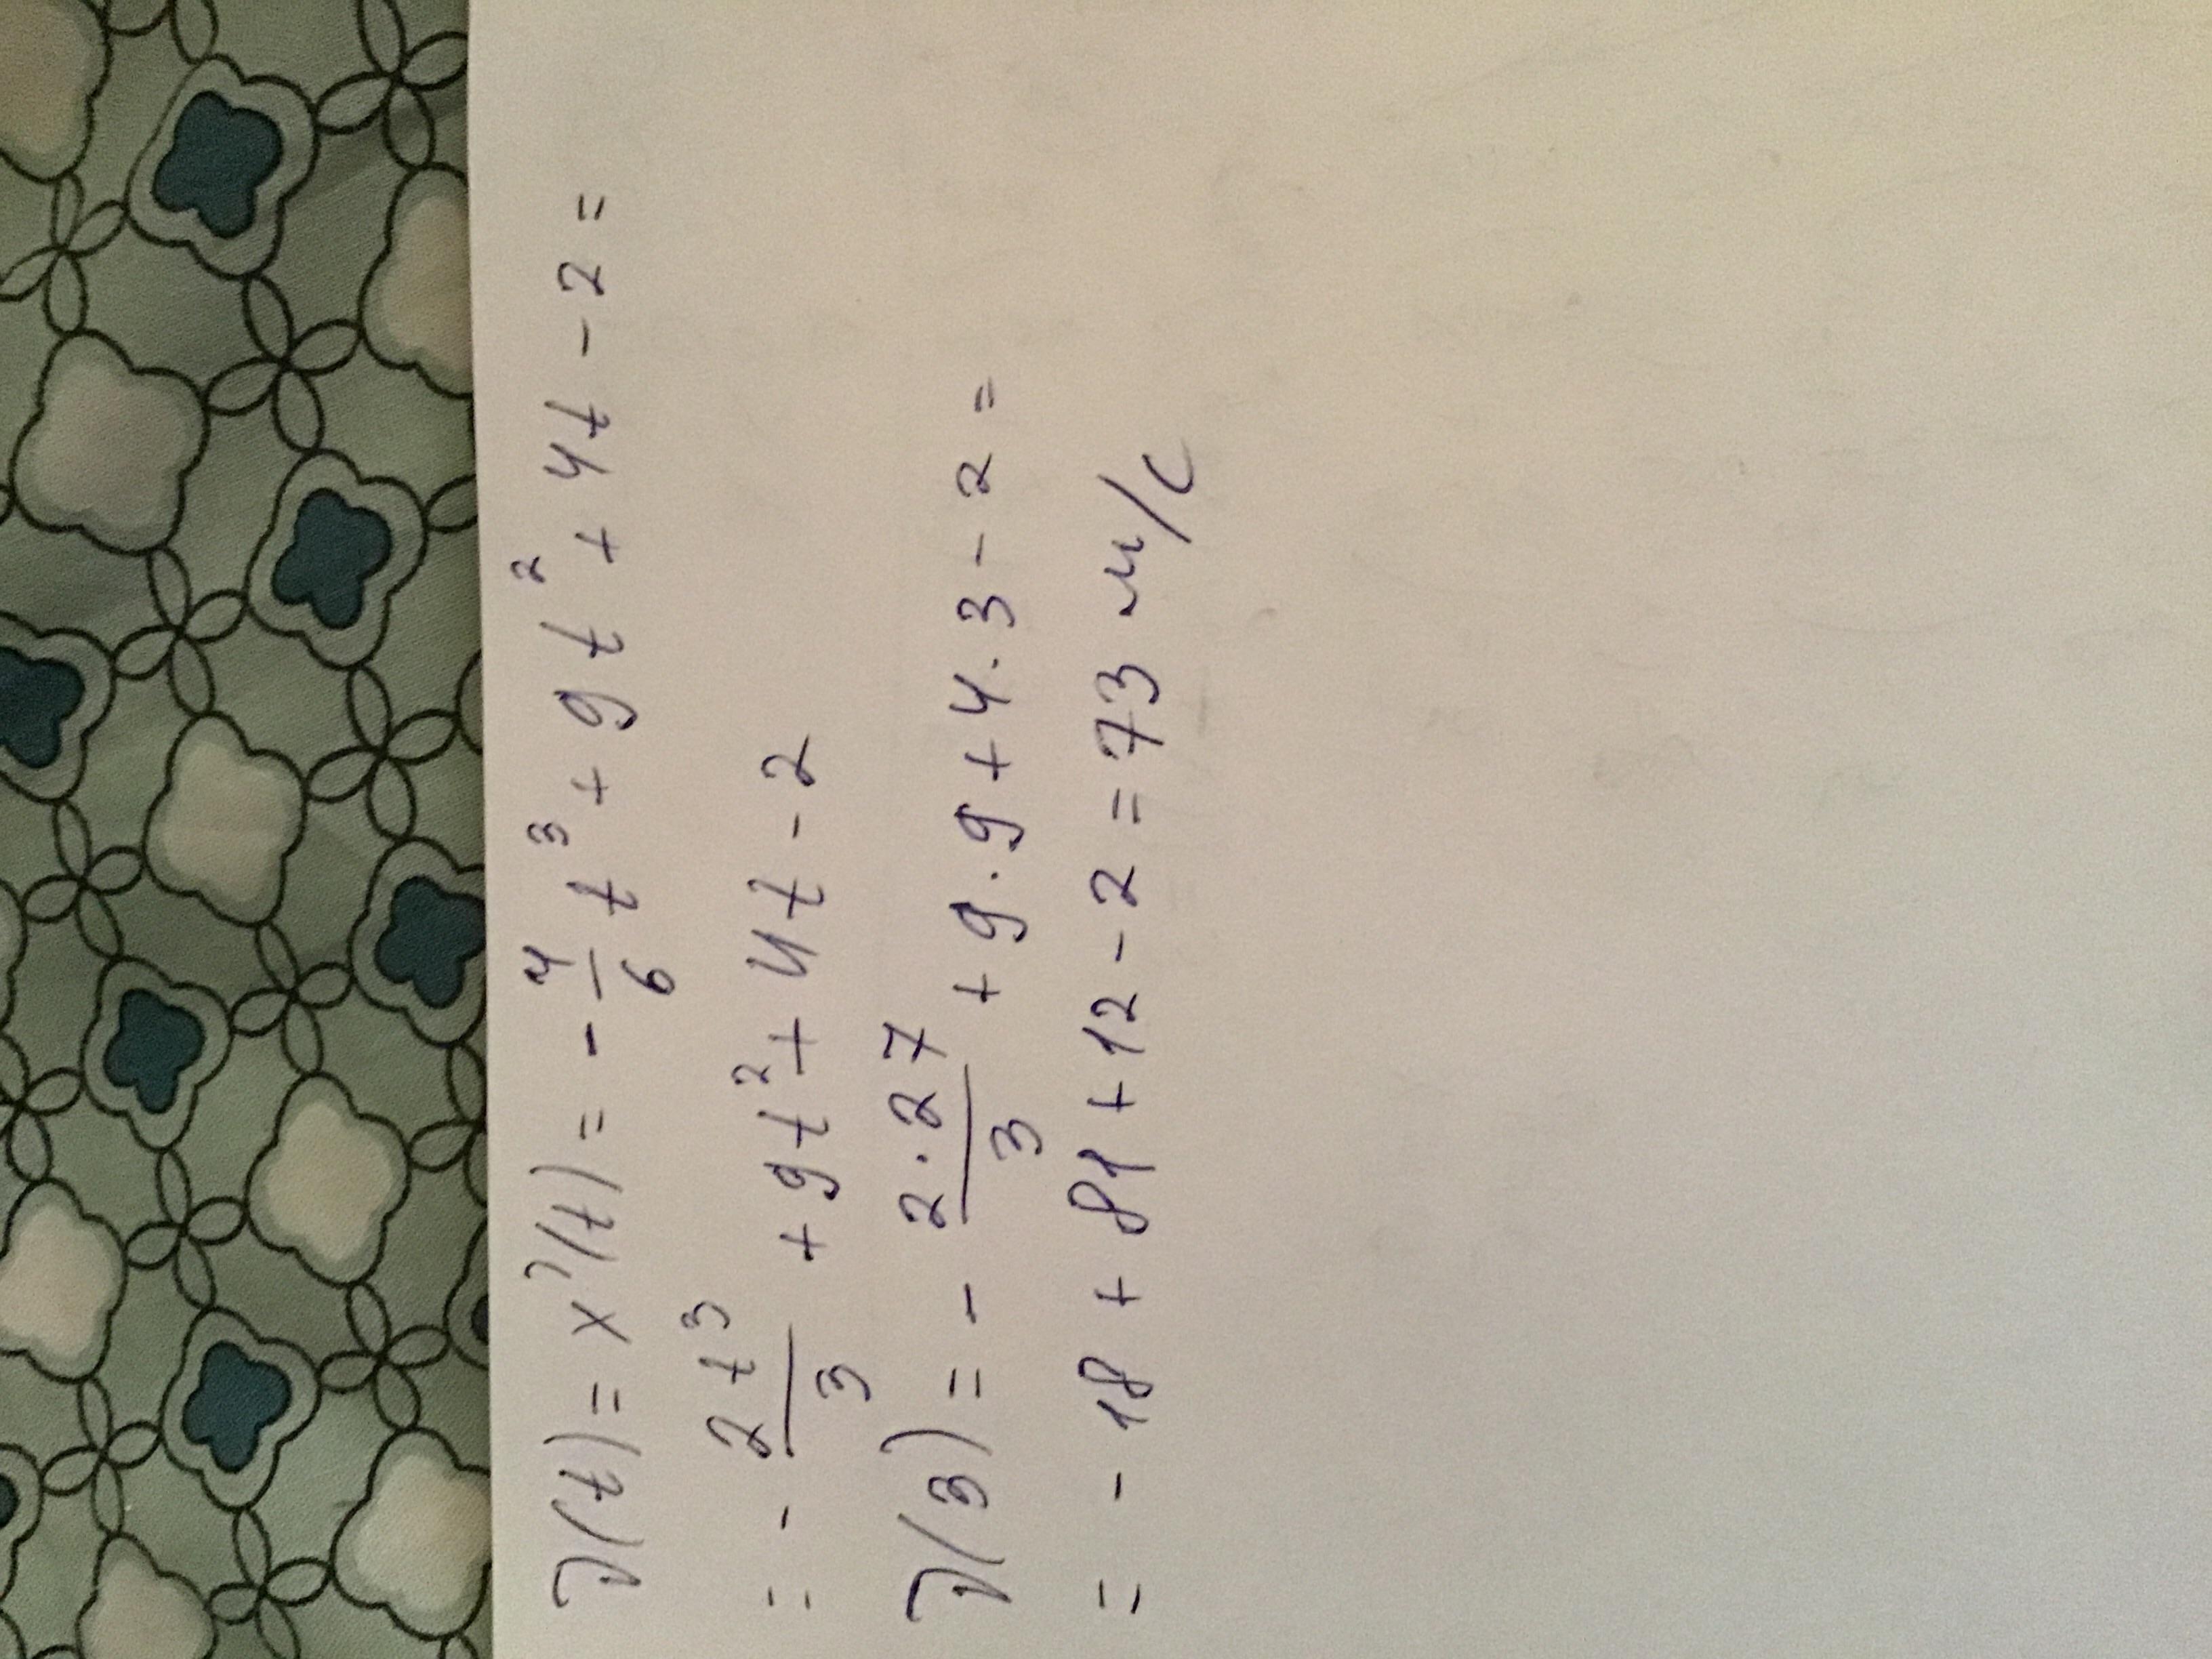 v(t) = x'(t) = - 4/6 t³ + 9t² + 4t - 2 =
= - 2t³/3 + 9t² + 4t - 2
v(3) = - 2·27/3 + 9·9 + 4·3 - 2 =
= - 18 + 81 + 12 - 2 = 73 м/с